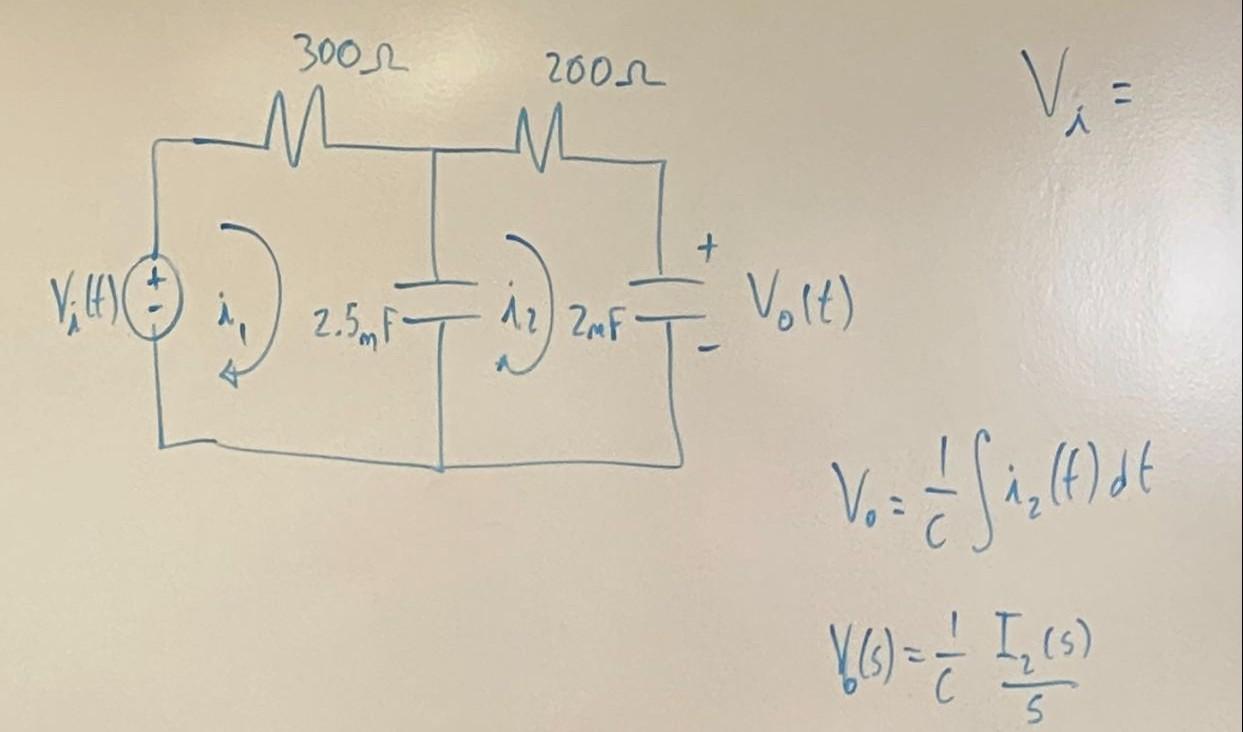 300Ω
200Ω
V_i =
V_i(t)
+
-
i_1
2.5mF
i_2
2mF
+
-
V_o(t)
V_o = 1/C ∫ i_2(t) dt
V_o(s) = 1/C I_2(s)/s